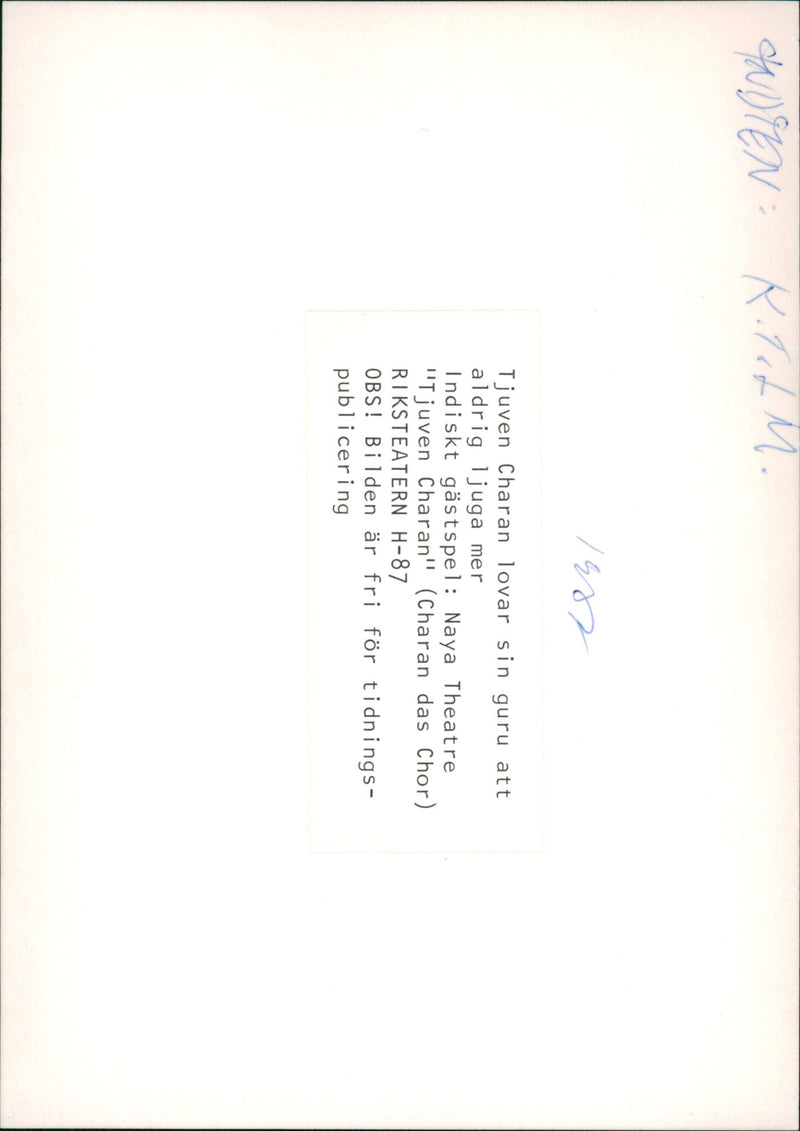 INDIEN: K.T.L M.
1987
Tjuven Charan lovar sin guru att
aldrig ljuga mer
Indiskt gästspel: Naya Theatre
"Tjuven Charan" (Charan das Chor)
RIKSTEATERN H-87
OBS! Bilden är fri för tidnings-
publicering